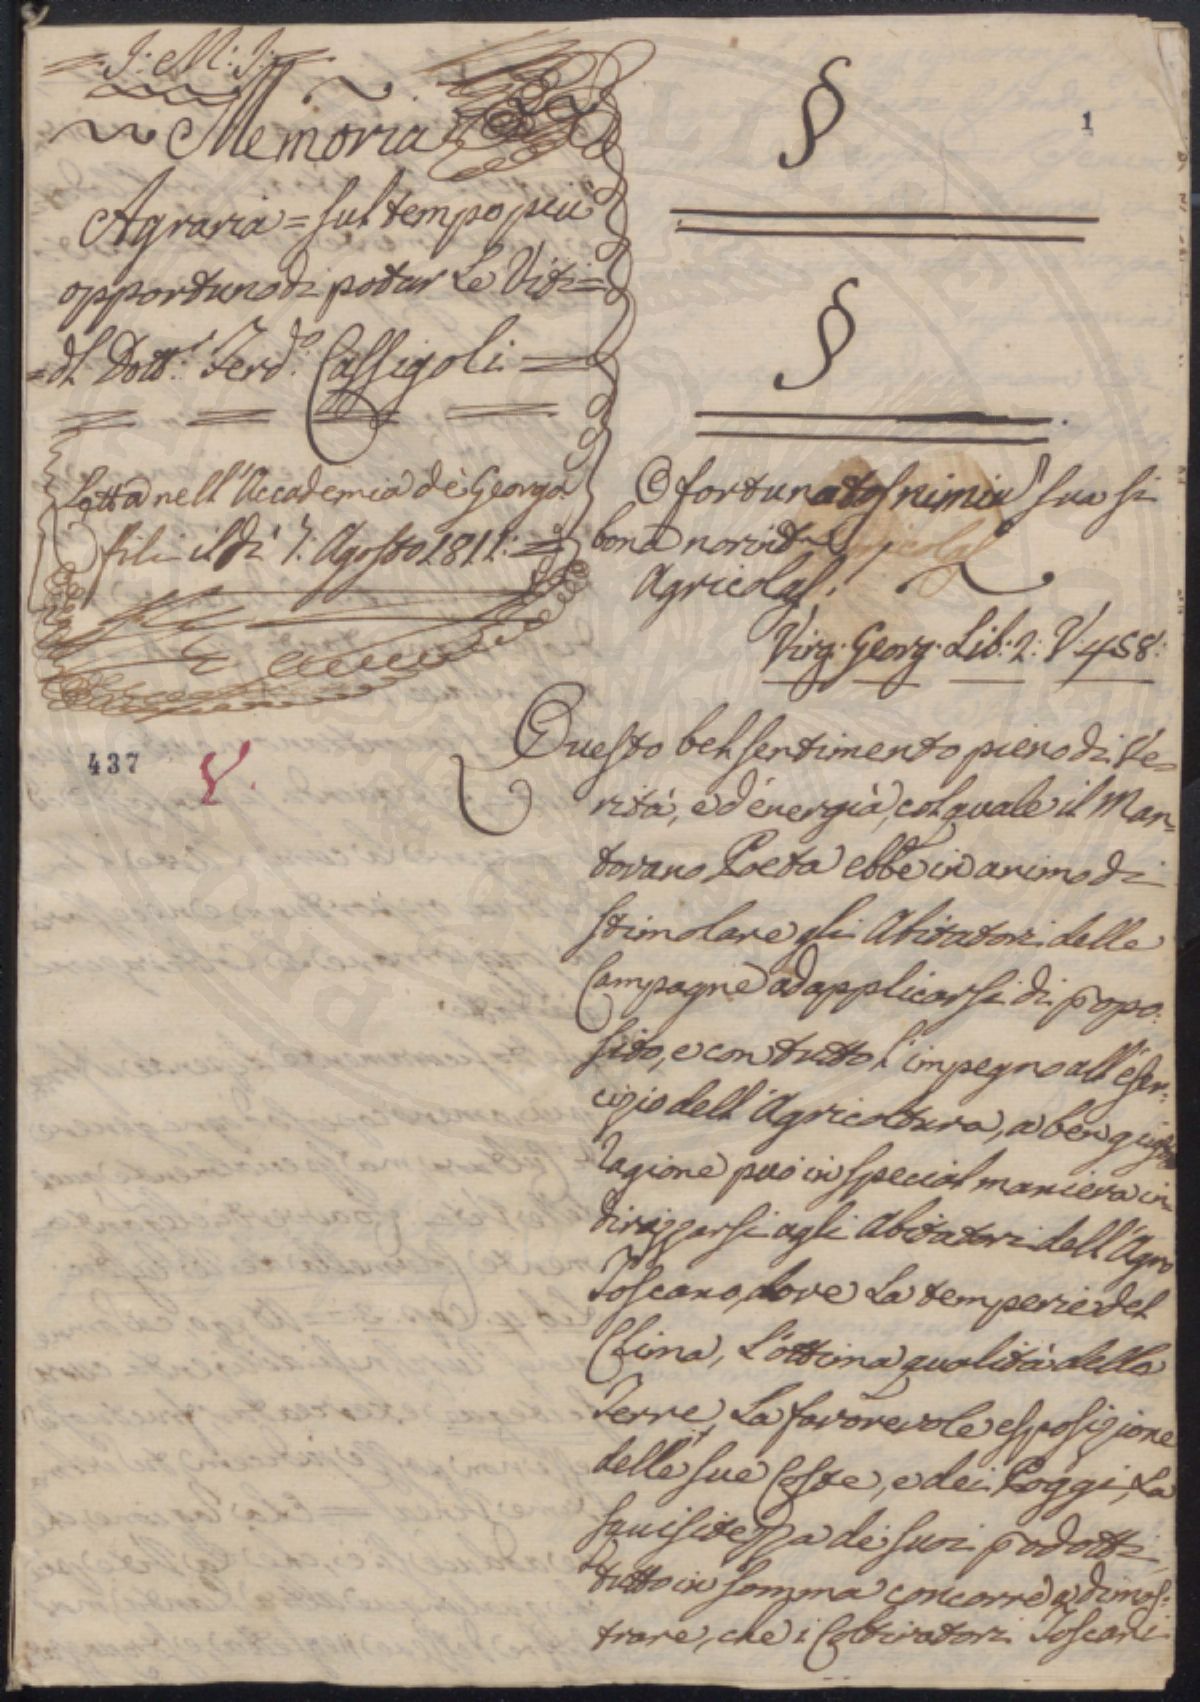 = J: M: J: =
Memoria
Agraria = sul tempo più
opportuno di potar Le Viti =
= Del Dott.r Ferd.o Cassigoli =
Letta nell'Accademia de' Georgo
fili il dì 7: Agosto 1811: =
437
V.
§
1
§
O fortunatos nimium sua si
bona norint
Agricolas!
Virg: Georg: Lib: 2: V: 458:
Questo bel sentimento pieno di Ve=
rità, e d'energia, col quale il Man=
tovano Poeta ebbe in animo di
stimolare gli Abitatori delle
Campagne ad applicarsi di propo:
sito, e con tutto l'impegno all'eser:
cizio dell'Agricoltura, a ben giusta
ragione può in special maniera in=
dirizzarsi agli Abitatori dell'Agro
Toscano, dove La temperie del
Clima, L'ottima qualità delle
Terre, La favorevole esposizione
delle sue Coste, e dei Poggi, La
squisitezza de' suoi prodotti,
tutto in somma concorre a dimos:
trare, che i Coltivatori Toscani